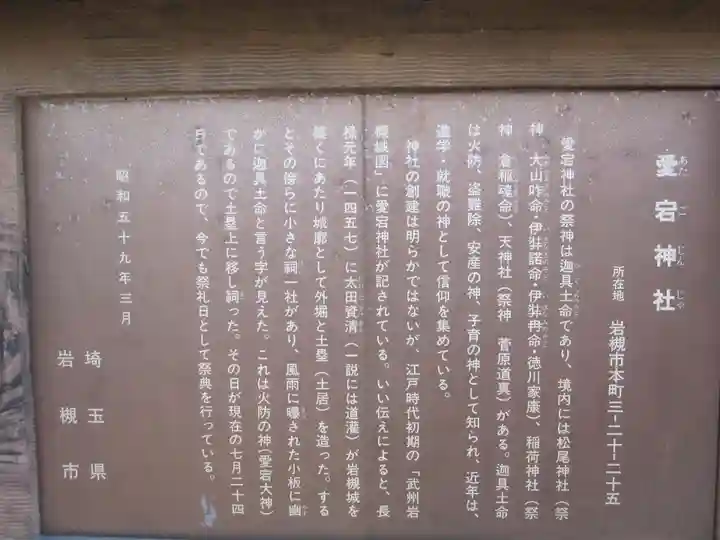 愛宕神社
所在地 岩槻市本町三ー二十ー二十五
愛宕神社の祭神は迦具土命であり、境内には松尾神社(祭
神、大山咋命・伊弉諾命・伊弉冉命・徳川家康)、稲荷神社(祭
神 倉稲魂命)、天神社(祭神 菅原道真)がある。迦具土命
は火防、盗難除、安産の神、子育の神として知られ、近年は、
進学・就職の神として信仰を集めている。
神社の創建は明らかではないが、江戸時代初期の「武州岩
槻城図」に愛宕神社が記されている。いい伝えによると、長
禄元年(一四五七)に太田資清(一説には道灌)が岩槻城を
築くにあたり城廓として外堀と土塁(土居)を造った。する
とその傍らに小さな祠一社があり、風雨に曝された小板に幽
かに迦具土命と言う字が見えた。これは火防の神(愛宕大神)
であるので土塁上に移し祠った。その日が現在の七月二十四
日であるので、今でも祭礼日として祭典を行っている。
昭和五十九年三月
埼玉県
岩槻市